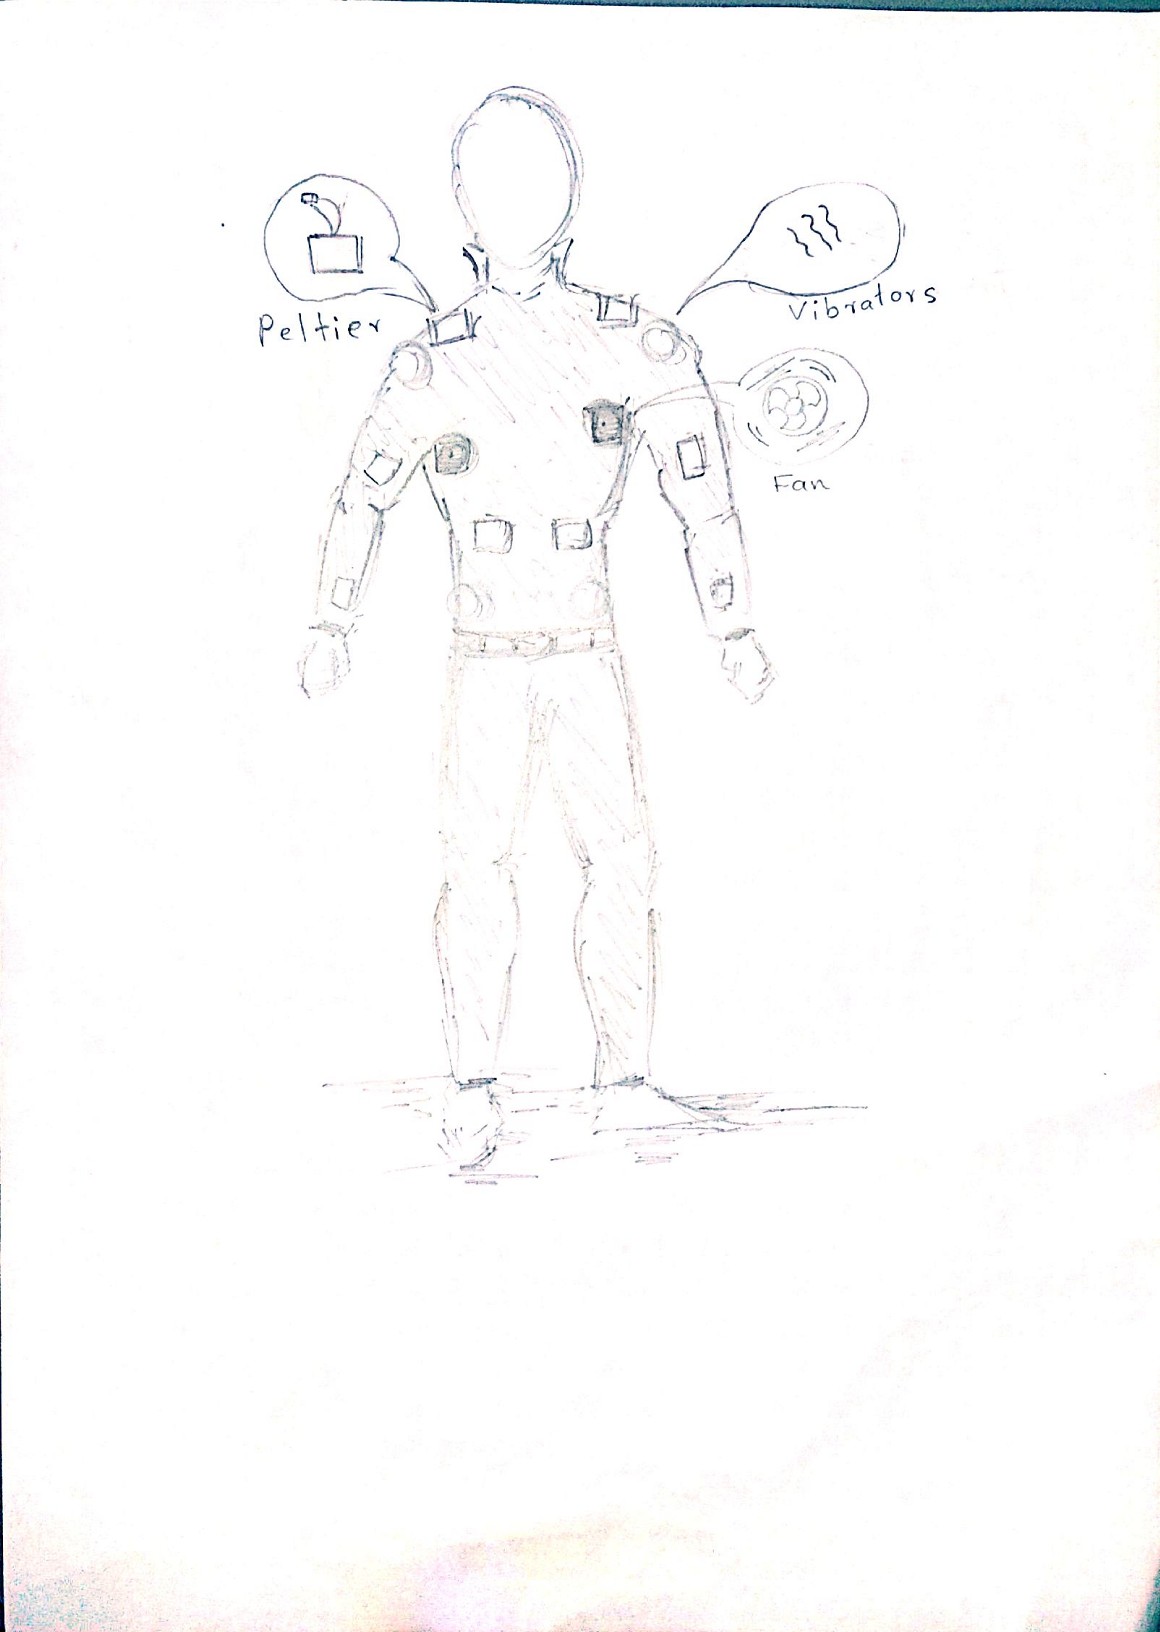 Peltier
Vibrators
Fan